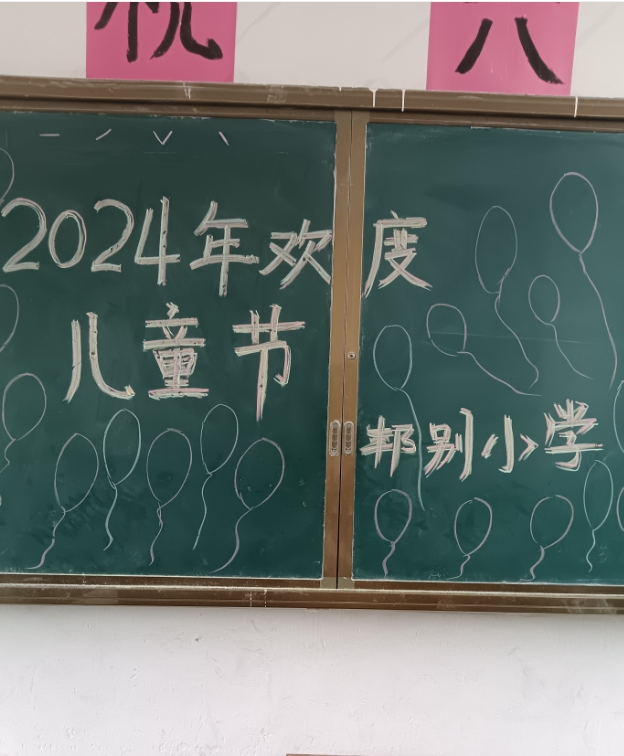 祝 六
2024年欢度
儿童节
邦别小学